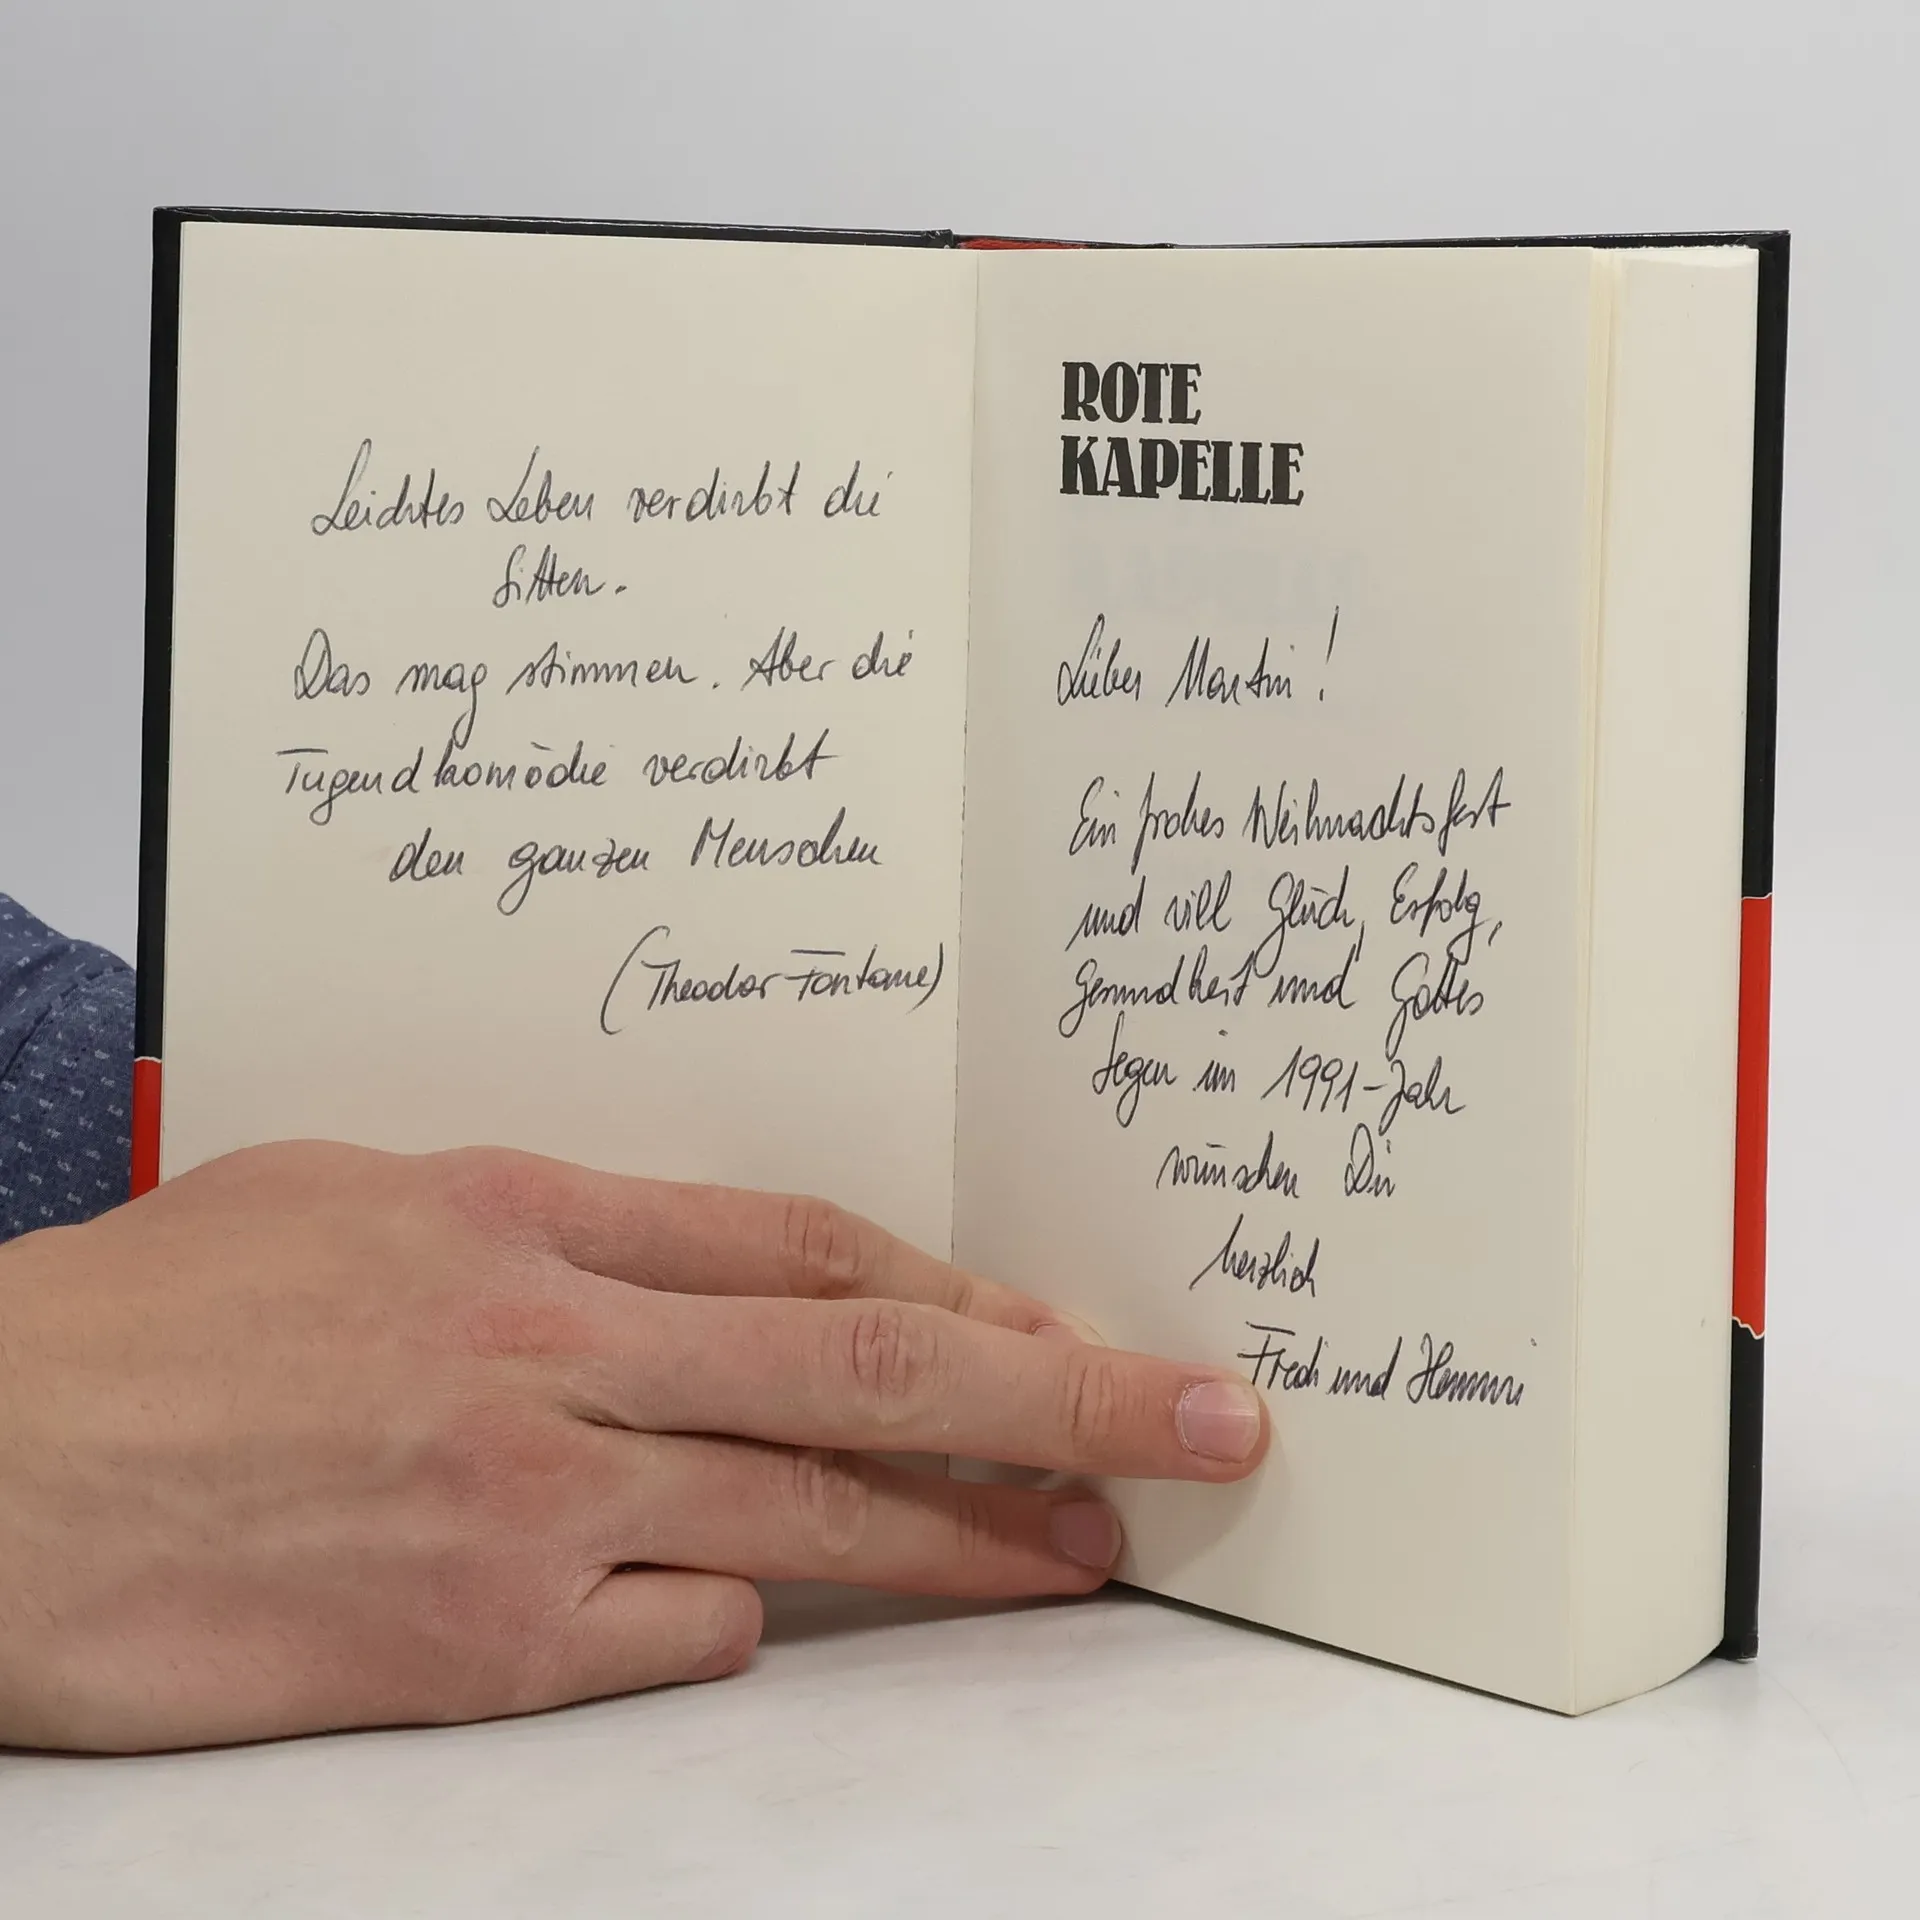 Leichtes Leben verdirbt die
Sitten.
Das mag stimmen. Aber die
Tugendkomödie verdirbt
den ganzen Menschen
(Theodor Fontane)
ROTE
KAPELLE
Lieber Martin!
Ein frohes Weihnachtsfest
und viel Glück, Erfolg,
Gesundheit und Gottes
Segen im 1991-Jahr
wünschen Dir
herzlich
Fredi und